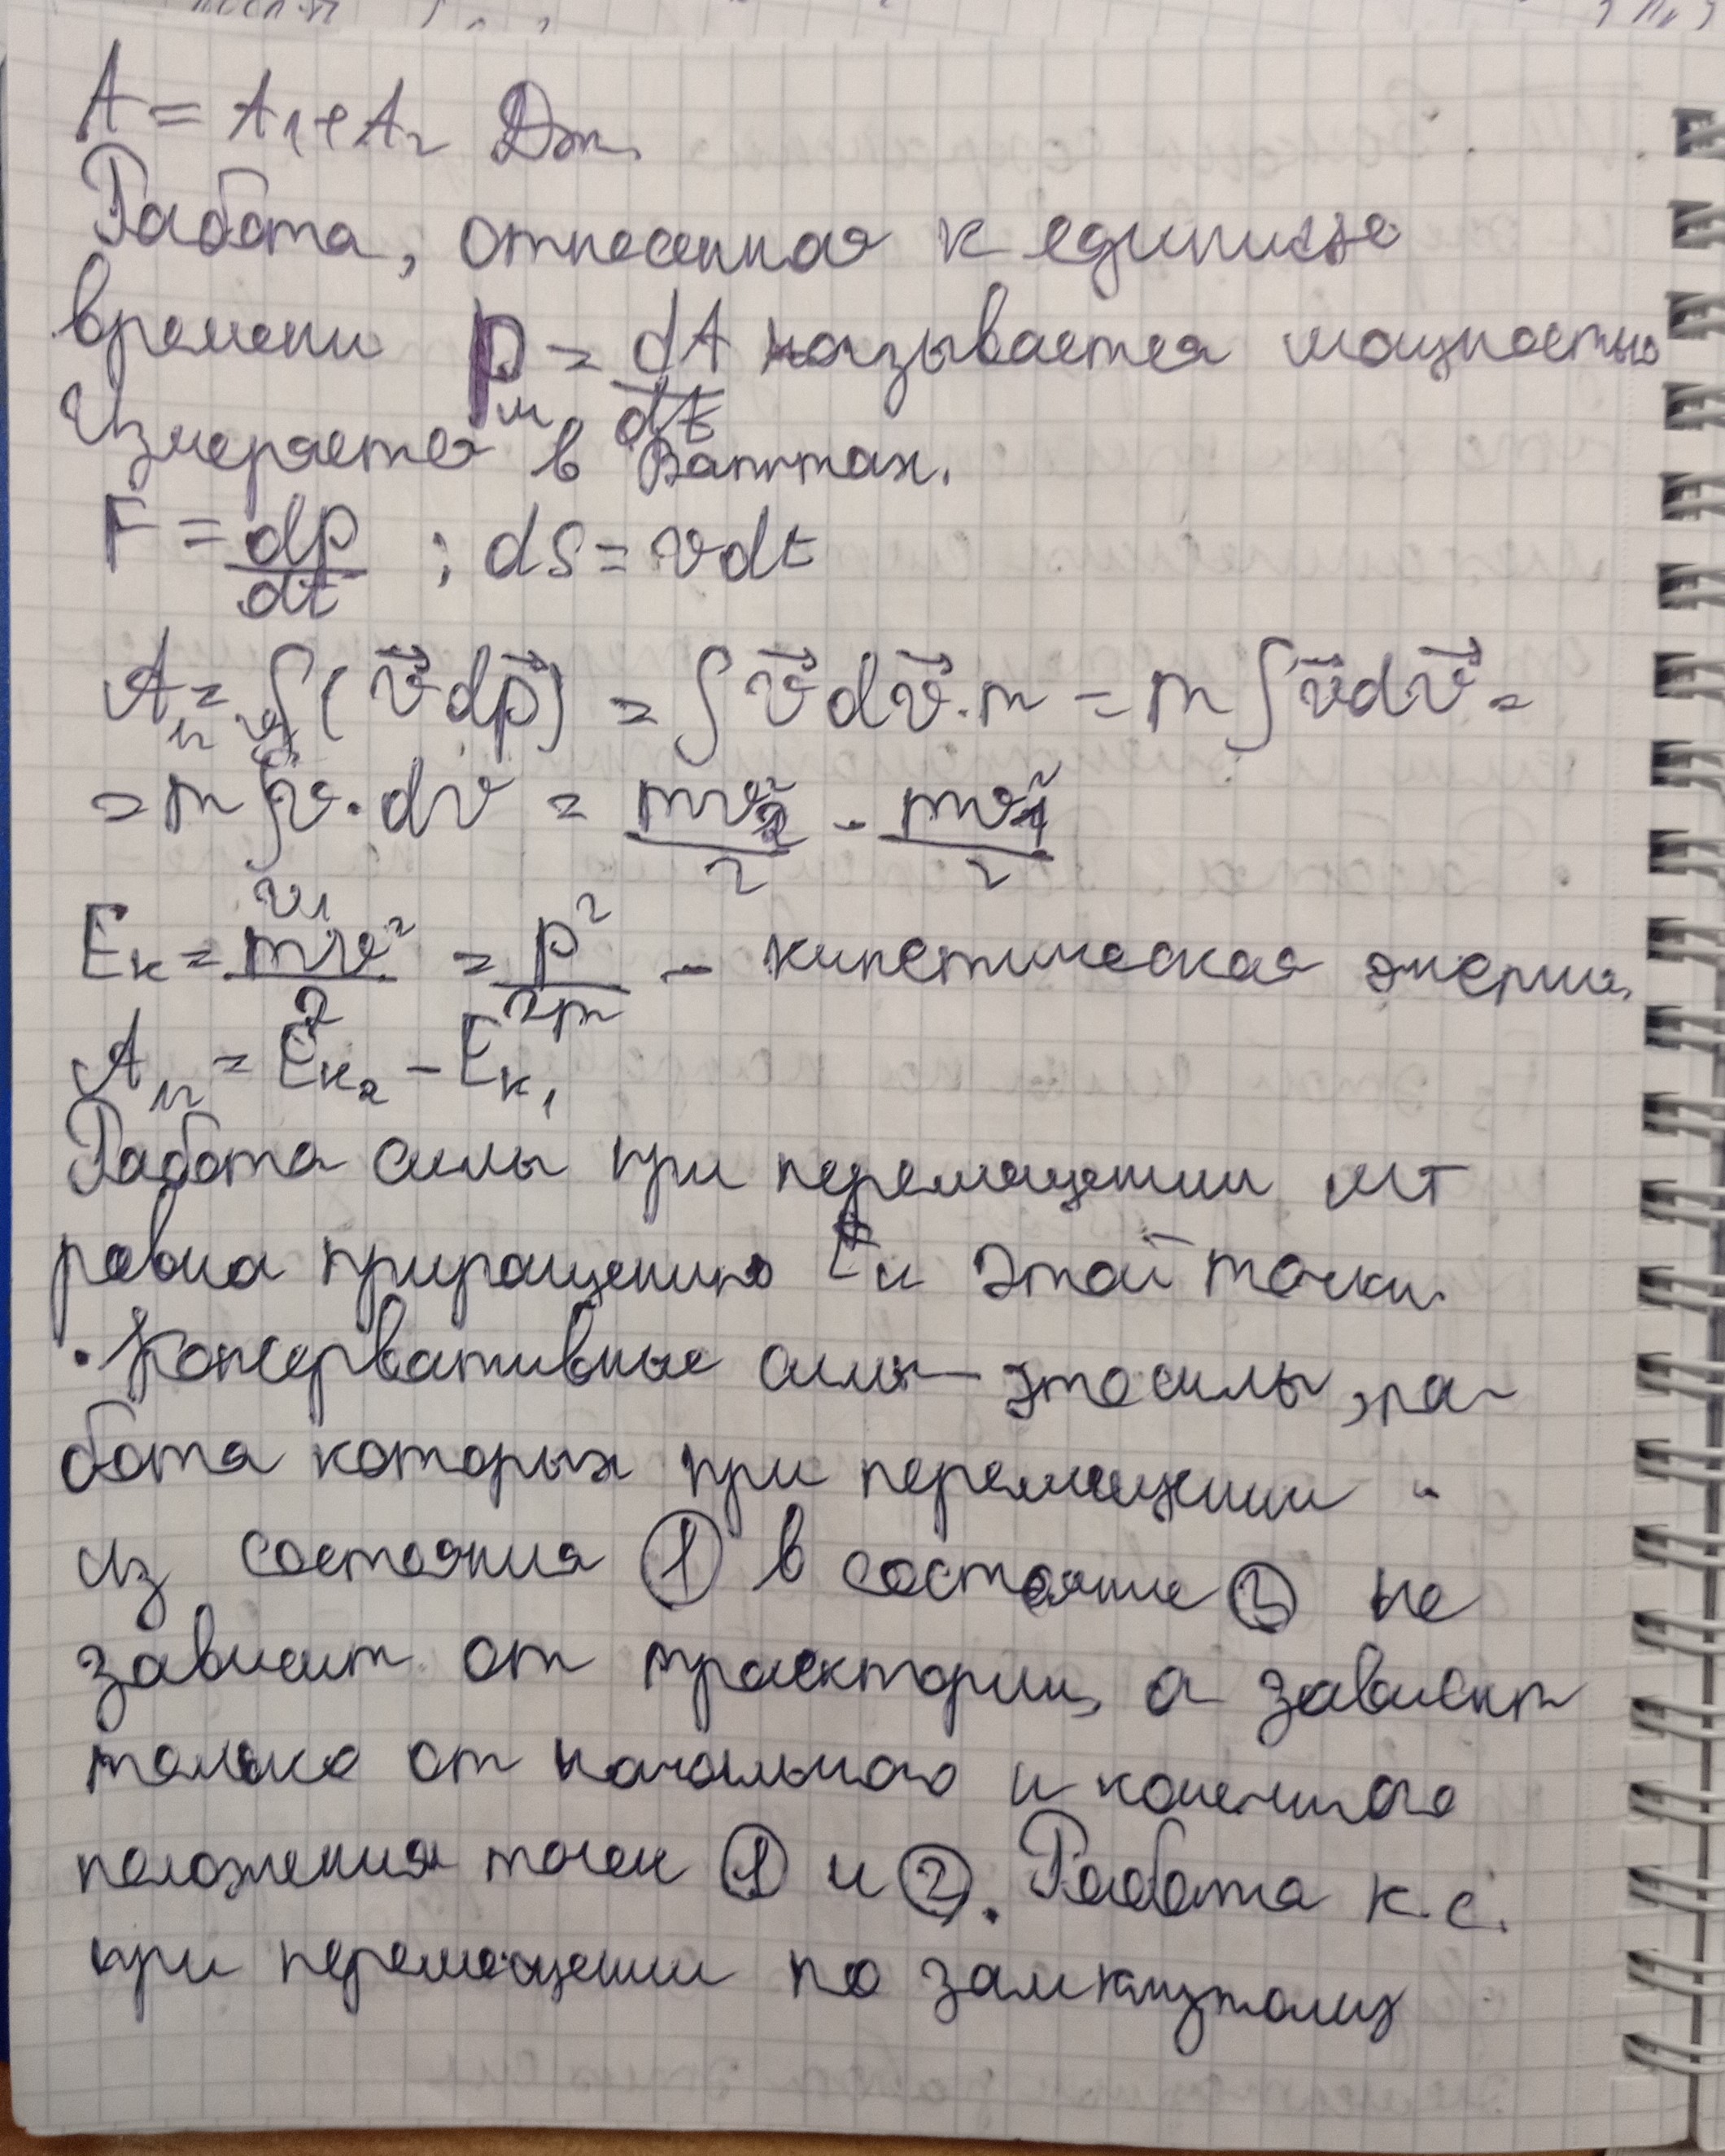 A = A₁ + A₂ Дж.
Работа, отнесенная к единице
времени P = dA/dt называется мощностью
м
Измеряется в Ваттах.
F = dp/dt ; dS = vdt
A₁₂ = ∫(v⃗dp⃗) = ∫v⃗dv⃗·m = m∫v⃗dv⃗ =
= m∫v·dv = mv₂²/2 - mv₁²/2
v₁
Eк = mv²/2 = p²/2m - кинетическая энергия
A₁₂ = Eк₂ - Eк₁
Работа силы при перемещении МТ
равна приращению Eк этой точки.
• Консервативные силы - это силы, ра-
бота которых при перемещении
из состояния ① в состояние ② не
зависит от траектории, а зависит
только от начального и конечного
положения точек ① и ②. Работа к.с.
при перемещении по замкнутому